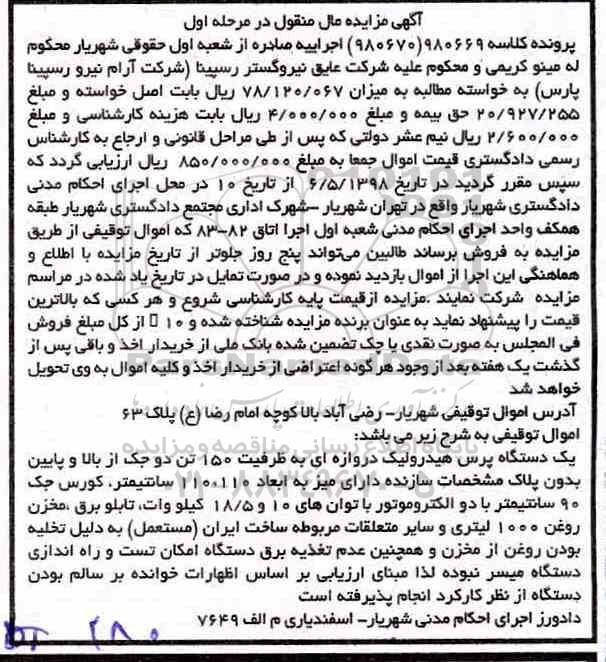 آگهی مزایده مال منقول در مرحله اول
پرونده کلاسه ۹۸۰۶۶۹(۹۸۰۶۷۰) اجراییه صادره از شعبه اول حقوقی شهریار محکوم
له مینو کریمی و محکوم علیه شرکت عایق نیروگستر رسپینا (شرکت آرام نیرو رسپینا
پارس) به خواسته مطالبه به میزان ۷۸/۱۲۰/۰۶۷ ریال بابت اصل خواسته و مبلغ
۲۰/۹۲۷/۲۵۵ حق بیمه و مبلغ ۴/۰۰۰/۰۰۰ ریال بابت هزینه کارشناسی و مبلغ
۲/۶۰۰/۰۰۰ ریال نیم عشر دولتی که پس از طی مراحل قانونی و ارجاع به کارشناس
رسمی دادگستری قیمت اموال جمعا به مبلغ ۸۵۰/۰۰۰/۰۰۰ ریال ارزیابی گردد که
سپس مقرر گردید در تاریخ ۶/۵/۱۳۹۸ از تاریخ ۱۰ در محل اجرای احکام مدنی
دادگستری شهریار واقع در تهران شهریار –شهرک اداری مجتمع دادگستری شهریار طبقه
همکف واحد اجرای احکام مدنی شعبه اول اجرا اتاق ۸۲-۸۳ که اموال توقیفی از طریق
مزایده به فروش برساند طالبین می‌تواند پنج روز جلوتر از تاریخ مزایده با اطلاع و
هماهنگی این اجرا از اموال بازدید نموده و در صورت تمایل در تاریخ یاد شده در مراسم
مزایده شرکت نمایند .مزایده ازقیمت پایه کارشناسی شروع و هر کسی که بالاترین
قیمت را پیشنهاد نماید به عنوان برنده مزایده شناخته شده و ۱۰ ▯ از کل مبلغ فروش
فی المجلس به صورت نقدی یا چک تضمین شده بانک ملی از خریدار اخذ و باقی پس از
گذشت یک هفته بعد از وجود هر گونه اعتراضی از خریدار اخذ و کلیه اموال به وی تحویل
خواهد شد
آدرس اموال توقیفی شهریار- رضی آباد بالا کوچه امام رضا (ع) پلاک ۶۳
اموال توقیفی به شرح زیر می باشد:
یک دستگاه پرس هیدرولیک دروازه ای به ظرفیت ۱۵۰ تن دو جک از بالا و پایین
بدون پلاک مشخصات سازنده دارای میز به ابعاد ۱۱۰*۲۱۰ سانتیمتر، کورس جک
۹۰ سانتیمتر با دو الکتروموتور با توان های ۱۰ و ۱۸/۵ کیلو وات، تابلو برق ،مخزن
روغن ۱۰۰۰ لیتری و سایر متعلقات مربوطه ساخت ایران (مستعمل) به دلیل تخلیه
بودن روغن از مخزن و همچنین عدم تغذیه برق دستگاه امکان تست و راه اندازی
دستگاه میسر نبوده لذا مبنای ارزیابی بر اساس اظهارات خوانده بر سالم بودن
دستگاه از نظر کارکرد انجام پذیرفته است
دادورز اجرای احکام مدنی شهریار- اسفندیاری م الف ۷۶۴۹